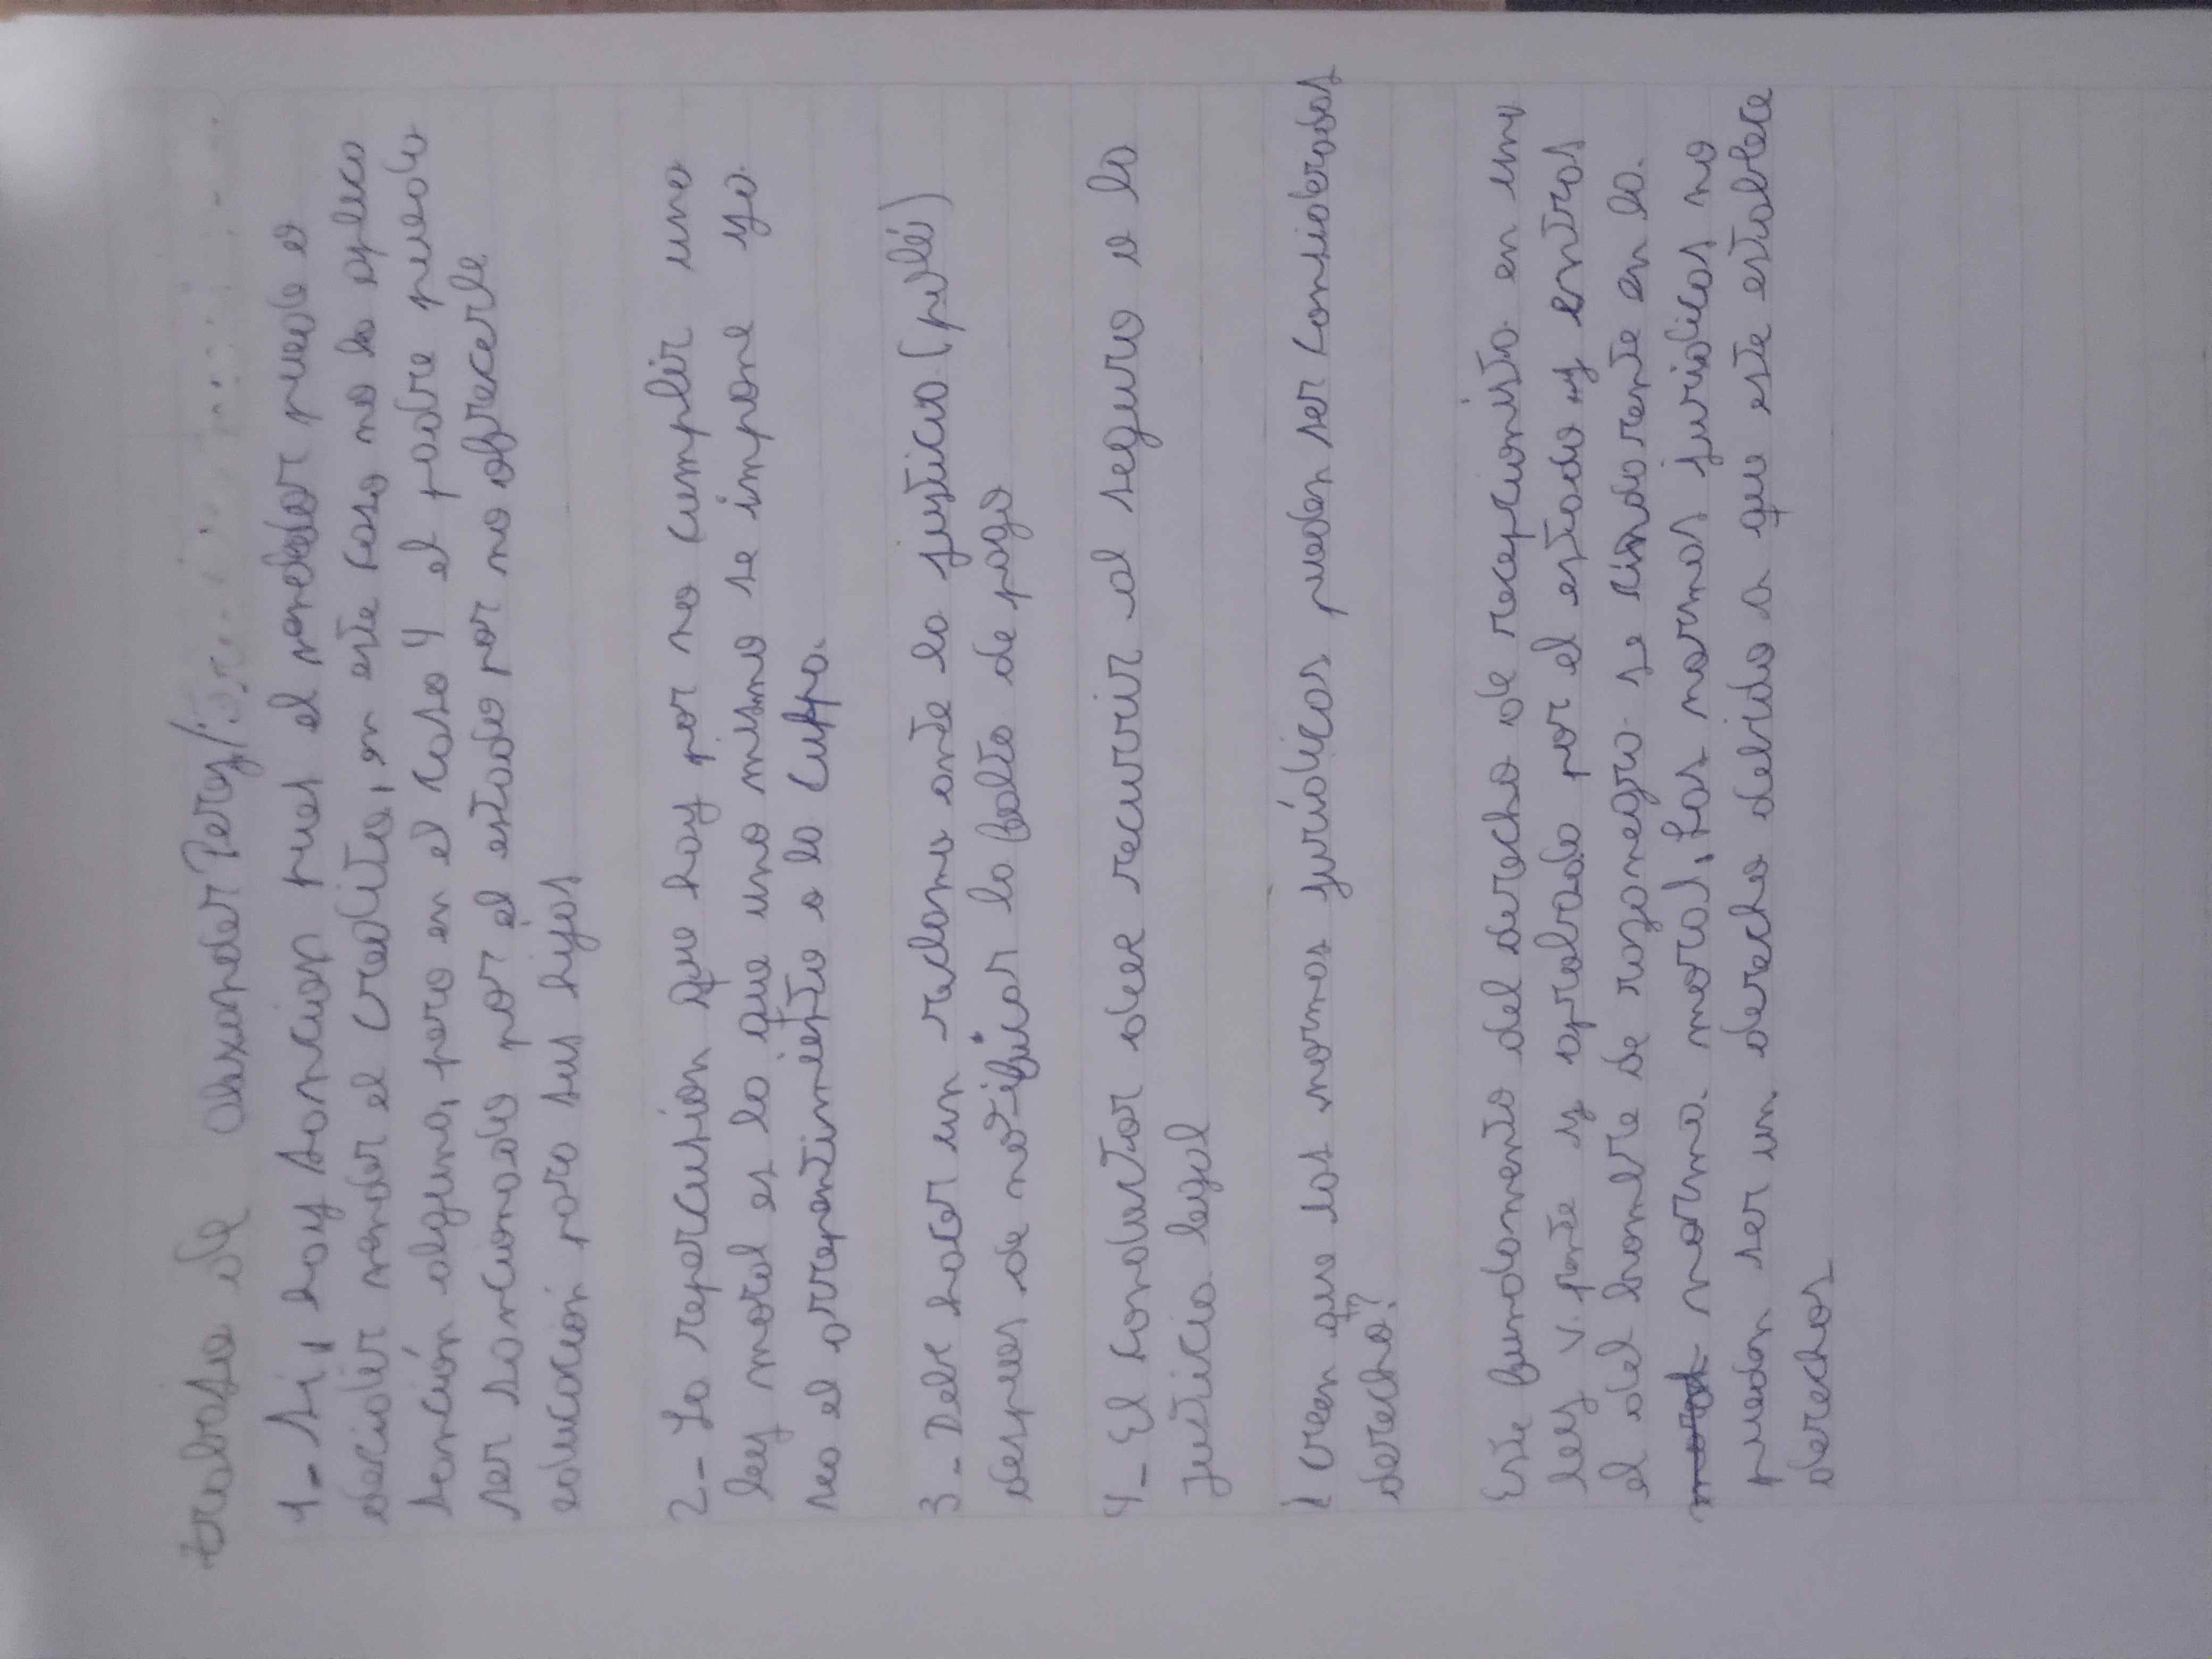 trabajo de Alexander Perez/
1- Si, hay sancion pues el vendedor puede o
decidir vender el credito, en este caso no la aplica
sanción alguna, pero en el caso 4 el padre puede
ser sancionado por el estado por no ofrecerle
educacion para sus hijos
2- La repercusion que hay por no cumplir una
ley moral es la que uno mismo se impone ya
sea el arrepentimiento o la culpa.
3- Debe hacer un reclamo ante la justicia
despues de notificar la falta de pago
4- El conductor debe recurrir al seguro o la
justicia legal
creen que las normas jurídicas pueden ser consideradas
derecho?
Este fundamento del derecho de recepcionista en una
ley y aprobado por el estado y entras
el del hombre de en la.
norma moral, Las normas juridicas no
puedan ser un derecho debido a que este establece
derechos